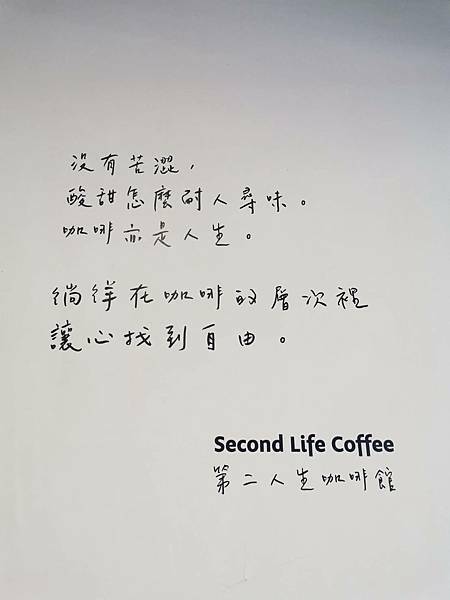 沒有苦澀，
酸甜怎麼耐人尋味。
咖啡亦是人生。
徜徉在咖啡的層次裡
讓心找到自由。
Second Life Coffee
第二人生咖啡館